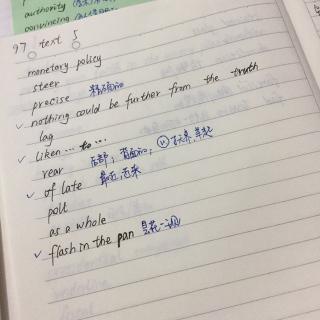 authority
convincing
97 text 5
monetary policy
steer
precise 精确的
✓ nothing could be further from the truth
lag
✓ liken ... to ...
rear 后部, 背面的, (v)
✓ of late 最近,近来
poll
as a whole
✓ flash in the pan 昙花一现